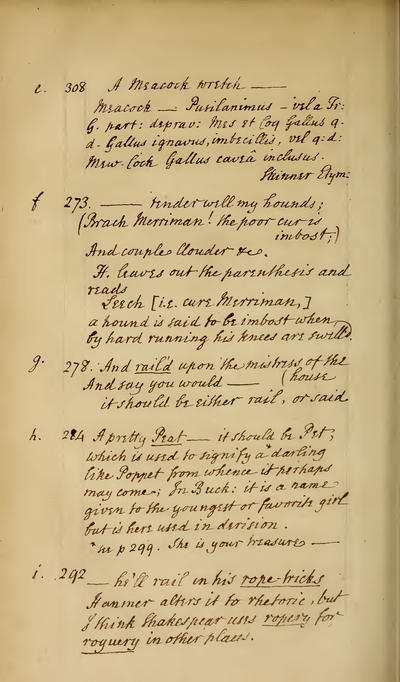 e. 308 A Meacock wretch —
Meacock — Pusilanimus – vel a Fr:
G. part: deprav: Mes et Coq Gallus q.
d. Gallus ignavus, imbecillis, vel q: d:
Mew-Cock Gallus caveâ inclusus.
Skinner Etym:
f 273. — tender well my hounds;
(Brach Merriman! the poor cur is
imbost;)
And couple Clouder &c.
H. leaves out the parenthesis and
reads
Leech [i.e. cure Merriman,]
a hound is said to be imbost when
by hard running his knees are swell'd.
g. 278. And rail'd upon the mistress of the
And say you would — (house
it should be either rail, or said
h. 284 A pretty Peat — it should be Pet;
which is used to signify a *darling
like Poppet from whence it perhaps
may come; In Buck: it is a name
given to the youngest or favorite girl
but is here used in derision.
* p 299. She is your treasure —
i. 292 — he'll rail in his rope-tricks
Hanmer alters it to rhetoric, but
I think Shakespear uses ropery for
roguery in other places.